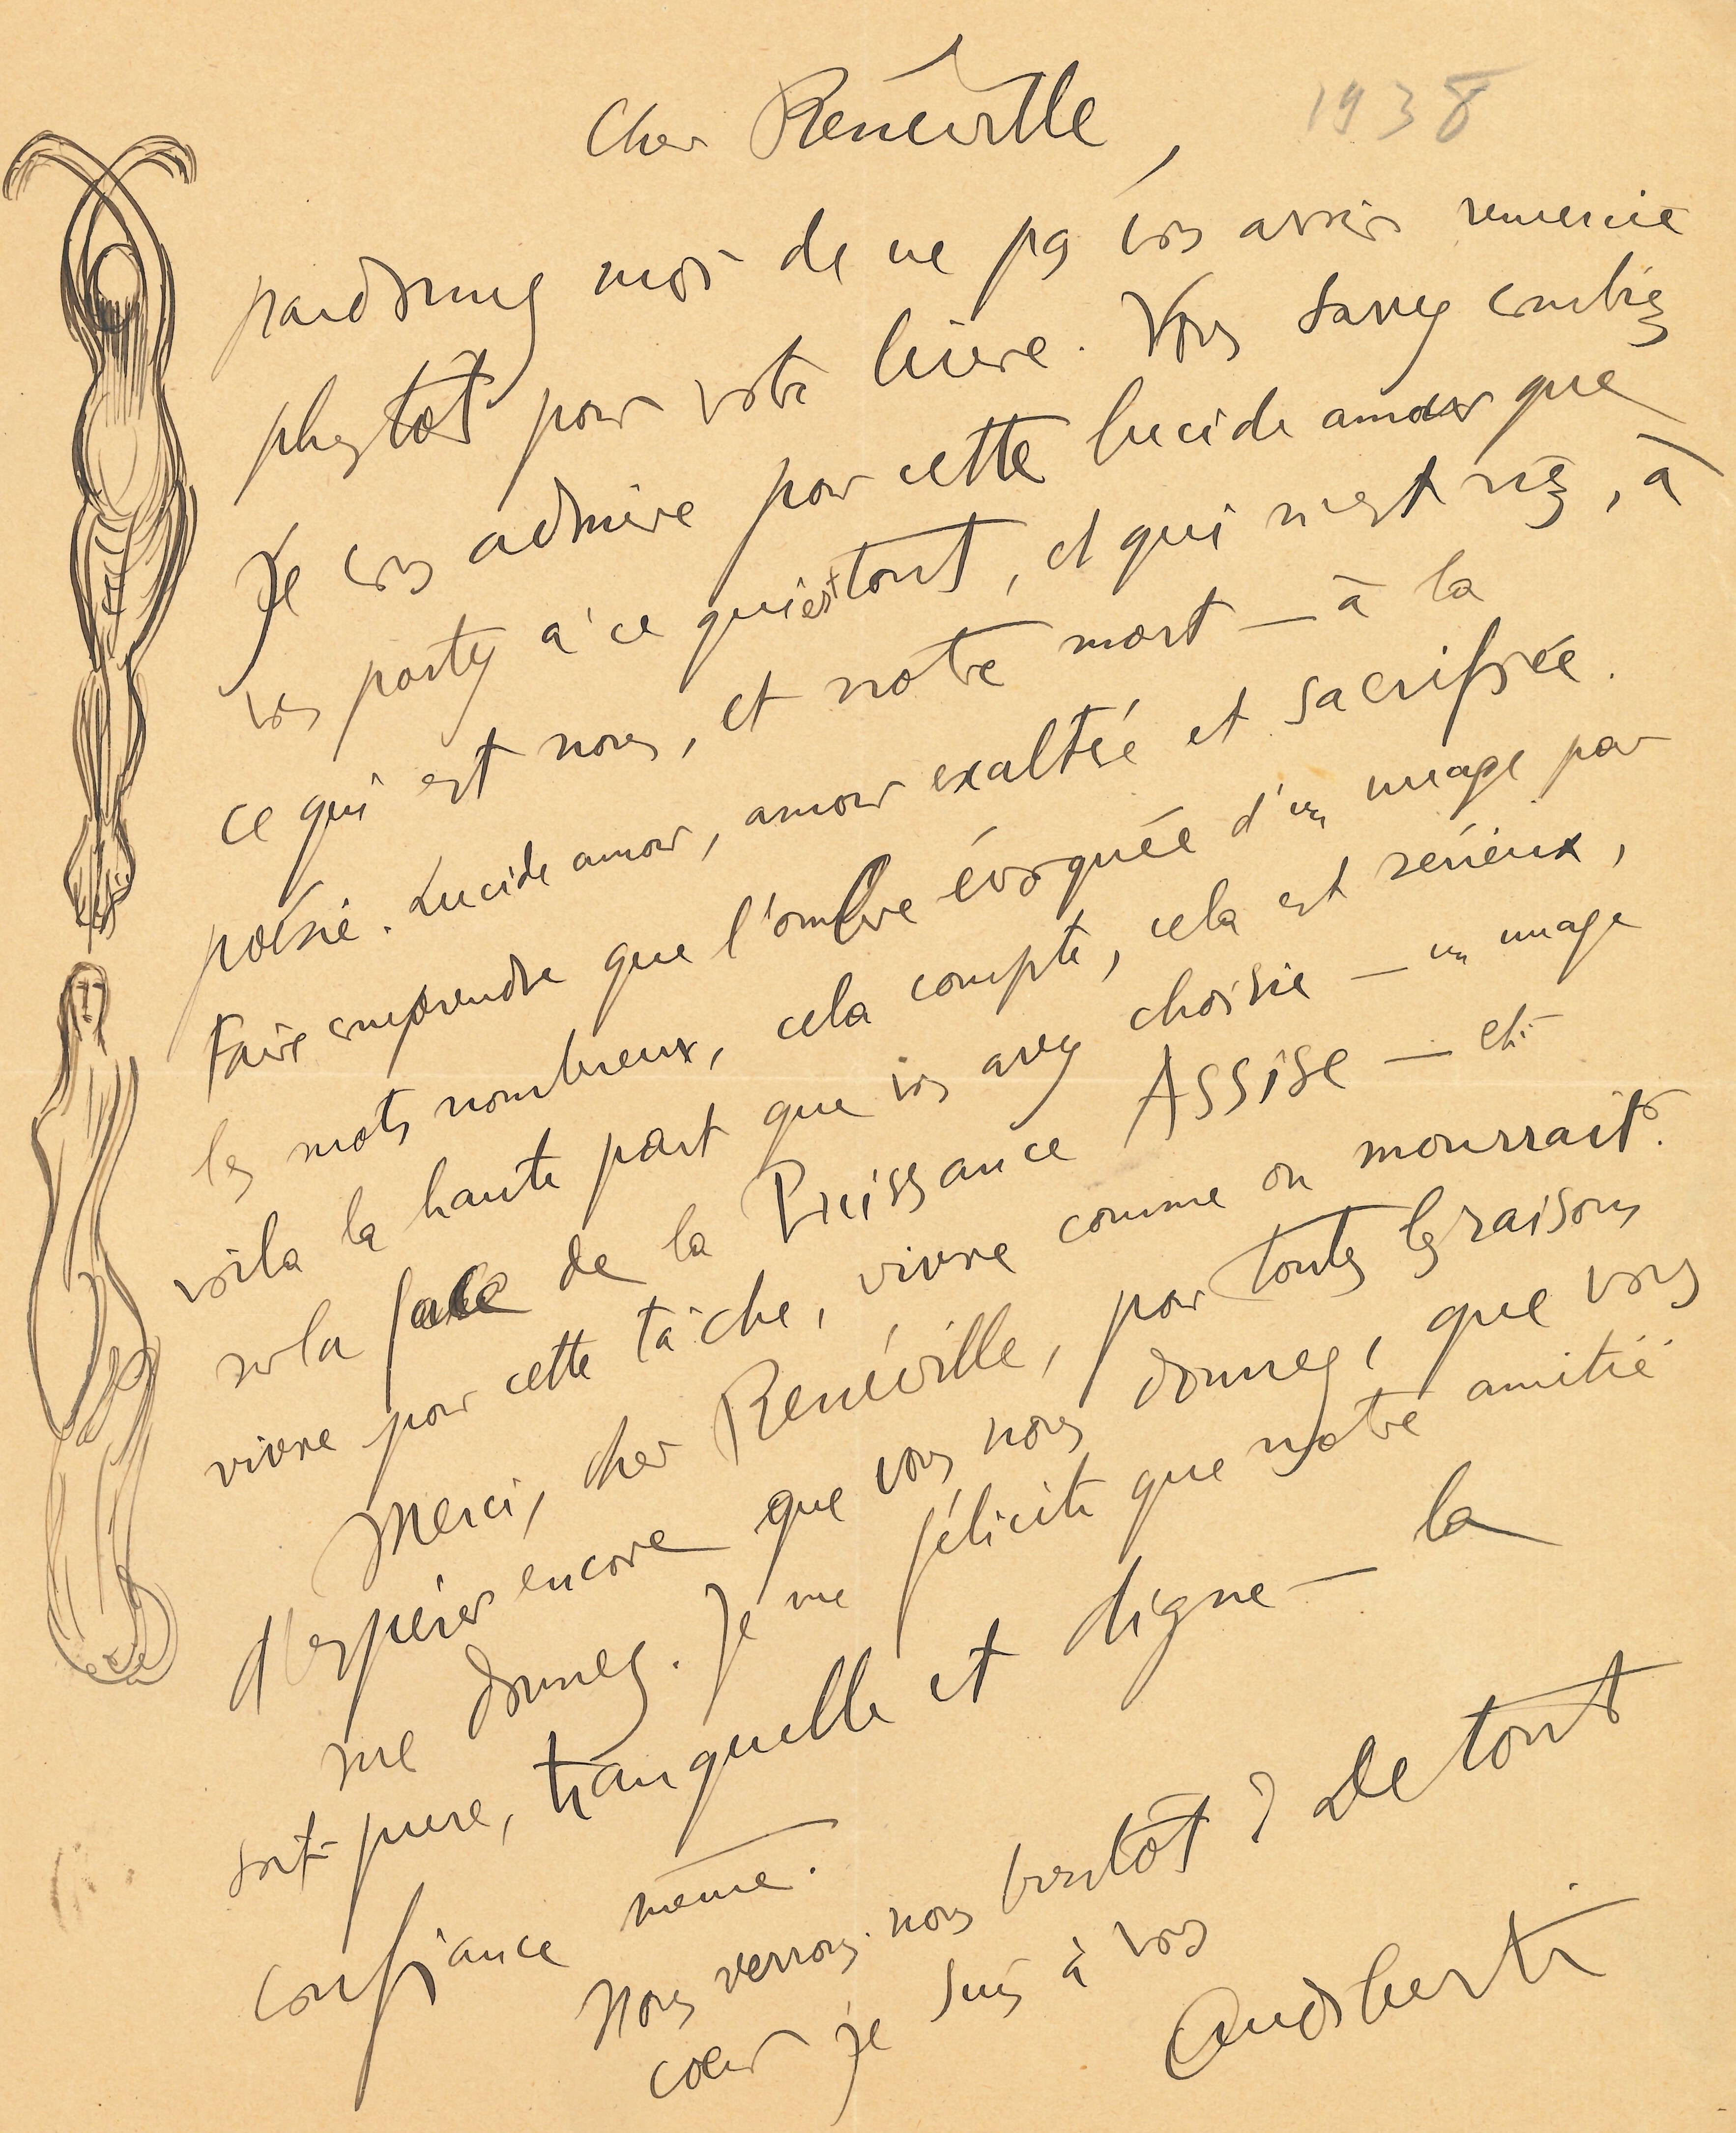 1938
Cher Renéville,
pardonnez moi de ne pas vous avoir remercié
plus tôt pour votre livre. Vous savez combien
Je vous admire pour cette lucide amour que
vous portez à ce qui est tout, et qui n'est rien, à
ce qui est nous, et notre mort — à la
poésie. Lucide amour, amour exaltée et sacrifiée.
Faire comprendre que l'ombre évoquée d'un nuage par
les mots nombreux, cela compte, cela est sérieux,
voilà la haute part que vous avez choisie — un nuage
sur la face de la Puissance Assise — et
vivre pour cette tâche, vivre comme on mourrait.
Merci, cher Renéville, pour toutes les raisons
d'espérer encore que vous nous donnez, que vous
me donnez. Je me félicite que notre amitié
soit pure, tranquille et digne — la
confiance même.
Nous verrons-nous bientôt ? De tout
coeur je suis à vous
Audiberti